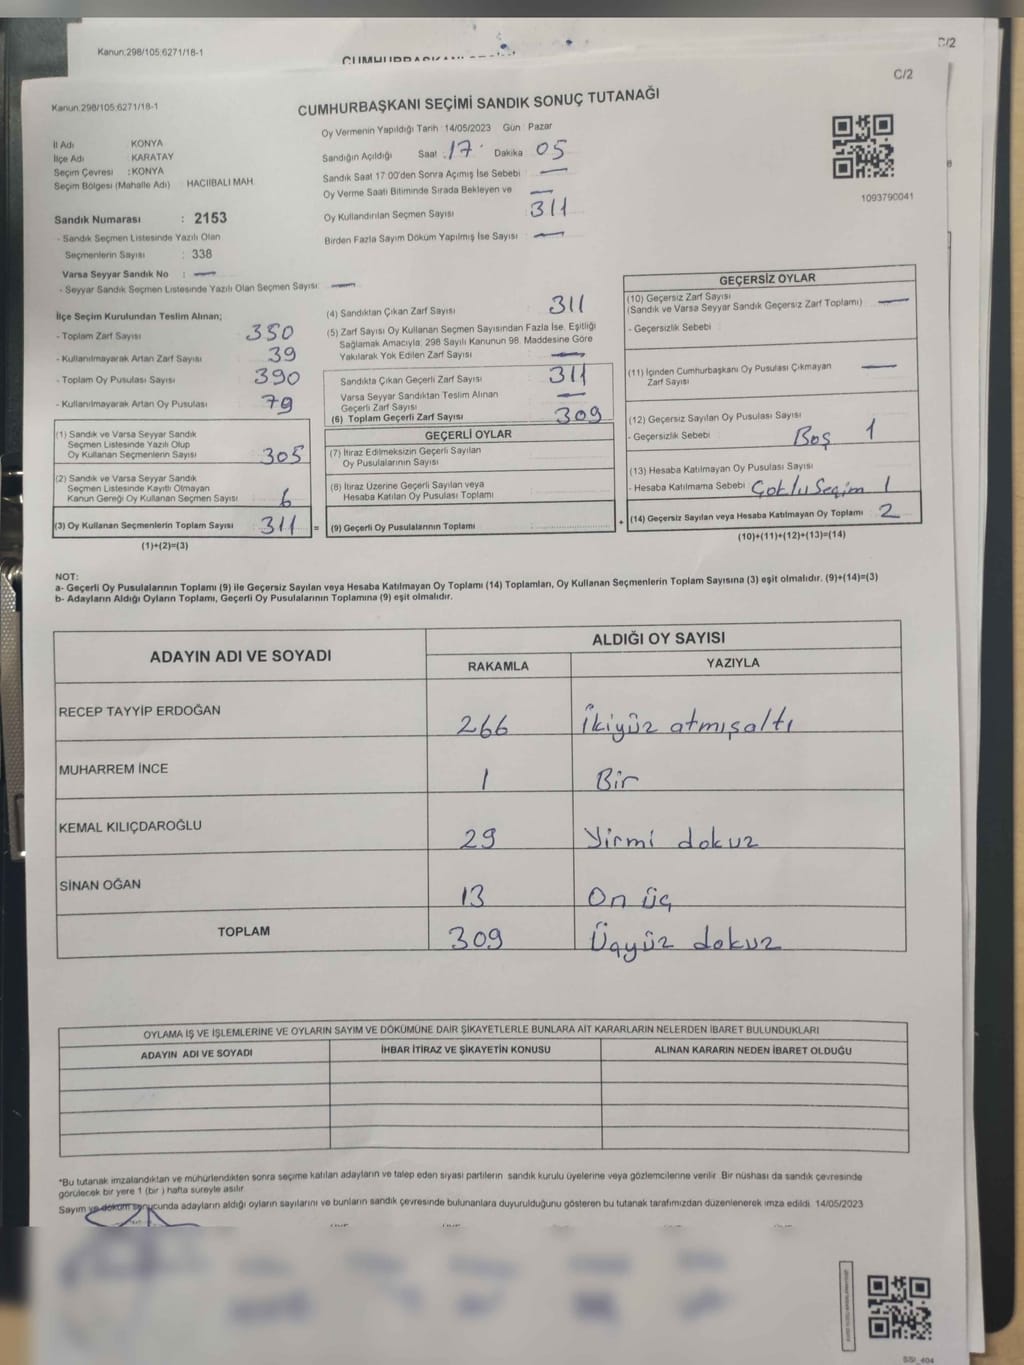 Kanun:298/105;6271/18-1
C/2
Kanun:298/105;6271/18-1
C/2
CUMHURBAŞKANI SEÇİMİ SANDIK SONUÇ TUTANAĞI
İl Adı KONYA
İlçe Adı KARATAY
Seçim Çevresi : KONYA
Seçim Bölgesi (Mahalle Adı) HACIİBALI MAH.
Oy Vermenin Yapıldığı Tarih 14/05/2023 Gün Pazar
Sandığın Açıldığı Saat : 17 Dakika 05
Sandık Saat 17:00'den Sonra Açımış İse Sebebi —
Oy Verme Saati Bitiminde Sırada Bekleyen ve —
Oy Kullandırılan Seçmen Sayısı 311
Birden Fazla Sayım Döküm Yapılmış İse Sayısı —
1093790041
Sandık Numarası : 2153
- Sandık Seçmen Listesinde Yazılı Olan
Seçmenlerin Sayısı : 338
Varsa Seyyar Sandık No : —
- Seyyar Sandık Seçmen Listesinde Yazılı Olan Seçmen Sayısı: —
İlçe Seçim Kurulundan Teslim Alınan;
- Toplam Zarf Sayısı 350
- Kullanılmayarak Artan Zarf Sayısı 39
- Toplam Oy Pusulası Sayısı 390
- Kullanılmayarak Artan Oy Pusulası 79
(1) Sandık ve Varsa Seyyar Sandık
Seçmen Listesinde Yazılı Olup
Oy Kullanan Seçmenlerin Sayısı 305
(2) Sandık ve Varsa Seyyar Sandık
Seçmen Listesinde Kayıtlı Olmayan
Kanun Gereği Oy Kullanan Seçmen Sayısı 6
(3) Oy Kullanan Seçmenlerin Toplam Sayısı 311 =
(1)+(2)=(3)
(4) Sandıktan Çıkan Zarf Sayısı 311
(5) Zarf Sayısı Oy Kullanan Seçmen Sayısından Fazla İse, Eşitliği
Sağlamak Amacıyla, 298 Sayılı Kanunun 98. Maddesine Göre
Yakılarak Yok Edilen Zarf Sayısı —
Sandıkta Çıkan Geçerli Zarf Sayısı 311
Varsa Seyyar Sandıktan Teslim Alınan
Geçerli Zarf Sayısı —
(6) Toplam Geçerli Zarf Sayısı 309
GEÇERLİ OYLAR
(7) İtiraz Edilmeksizin Geçerli Sayılan
Oy Pusulalarının Sayısı
(8) İtiraz Üzerine Geçerli Sayılan veya
Hesaba Katılan Oy Pusulası Toplamı
(9) Geçerli Oy Pusulalarının Toplamı +
GEÇERSİZ OYLAR
(10) Geçersiz Zarf Sayısı
(Sandık ve Varsa Seyyar Sandık Geçersiz Zarf Toplamı) —
- Geçersizlik Sebebi
(11) İçinden Cumhurbaşkanı Oy Pusulası Çıkmayan
Zarf Sayısı —
(12) Geçersiz Sayılan Oy Pusulası Sayısı
- Geçersizlik Sebebi Boş 1
(13) Hesaba Katılmayan Oy Pusulası Sayısı
- Hesaba Katılmama Sebebi Çoklu Seçim 1
(14) Geçersiz Sayılan veya Hesaba Katılmayan Oy Toplamı 2
(10)+(11)+(12)+(13)=(14)
NOT:
a- Geçerli Oy Pusulalarının Toplamı (9) ile Geçersiz Sayılan veya Hesaba Katılmayan Oy Toplamı (14) Toplamları, Oy Kullanan Seçmenlerin Toplam Sayısına (3) eşit olmalıdır. (9)+(14)=(3)
b- Adayların Aldığı Oyların Toplamı, Geçerli Oy Pusulalarının Toplamına (9) eşit olmalıdır.
ADAYIN ADI VE SOYADI
ALDIĞI OY SAYISI
RAKAMLA YAZIYLA
RECEP TAYYİP ERDOĞAN 266 İkiyüz atmışaltı
MUHARREM İNCE 1 Bir
KEMAL KILIÇDAROĞLU 29 Yirmi dokuz
SİNAN OĞAN 13 On üç
TOPLAM 309 Üçyüz dokuz
OYLAMA İŞ VE İŞLEMLERİNE VE OYLARIN SAYIM VE DÖKÜMÜNE DAİR ŞİKAYETLERLE BUNLARA AİT KARARLARIN NELERDEN İBARET BULUNDUKLARI
ADAYIN ADI VE SOYADI İHBAR İTİRAZ VE ŞİKAYETİN KONUSU ALINAN KARARIN NEDEN İBARET OLDUĞU
*Bu tutanak imzalandıktan ve mühürlendikten sonra seçime katılan adayların ve talep eden siyasi partilerin sandık kurulu üyelerine veya gözlemcilerine verilir. Bir nüshası da sandık çevresinde
görülecek bir yere 1 (bir ) hafta süreyle asılır.
Sayım ve döküm sonucunda adayların aldığı oyların sayılarını ve bunların sandık çevresinde bulunanlara duyurulduğunu gösteren bu tutanak tarafımızdan düzenlenerek imza edildi. 14/05/2023